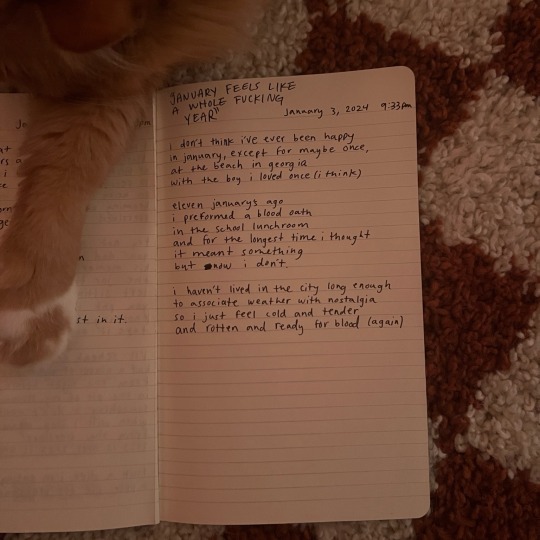 "JANUARY FEELS LIKE
A WHOLE FUCKING
YEAR"
January 3, 2024 9:33pm
i don't think i've ever been happy
in january, except for maybe once,
at the beach in georgia
with the boy i loved once (i think)
eleven januarys ago
i preformed a blood oath
in the school lunchroom
and for the longest time i thought
it meant something
but now i don't.
i haven't lived in the city long enough
to associate weather with nostalgia
so i just feel cold and tender
and rotten and ready for blood (again)
pm
i
st in it.